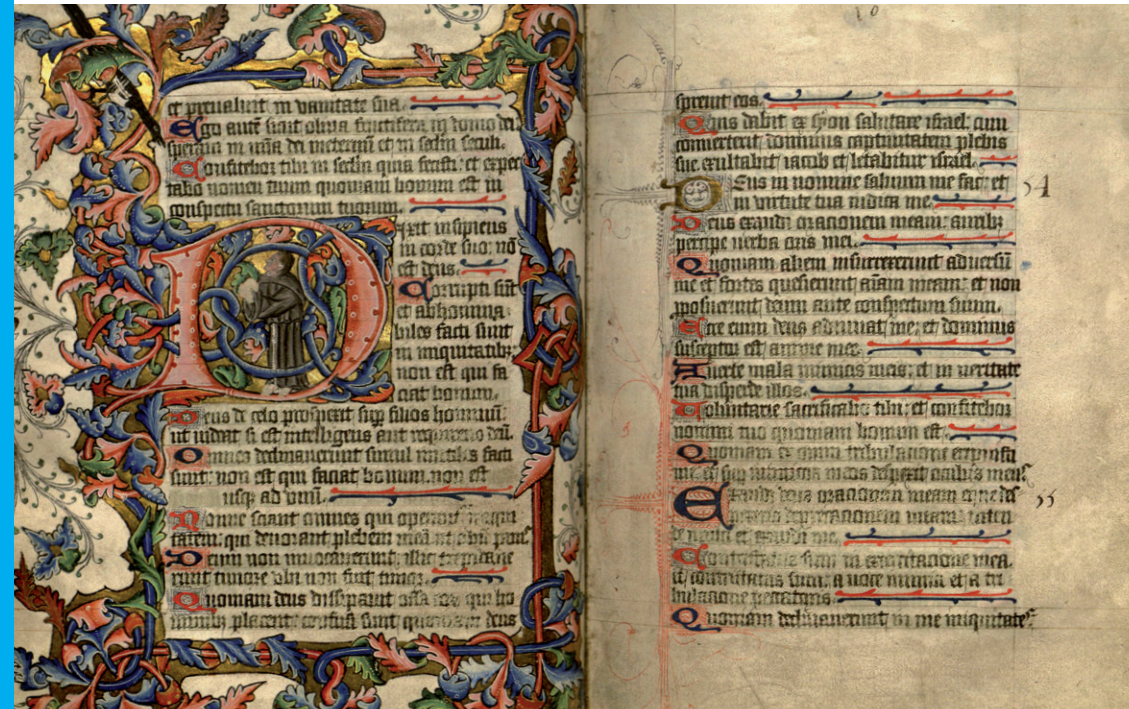 et prevaluit in vanitate sua.
Ego autē sicut oliva fructifera in domo dei
speravi in mīa dei in eternū et in sclm seculi.
Confitebor tibi in seclm quia fecisti: et expec
tabo nomen tuum quoniam bonum est in
conspectu sanctorum tuorum.
Dixit insipiens
in corde suo: nō
est deus.
Corrupti sūt
et abhomina
biles facti sunt
in iniquitatibz
non est qui fa
ciat bonum.
Deus de celo prospexit sup filios hominū:
ut videat si est intelligens aut requirens dm̄.
Omnes declinaverunt simul inutiles facti
sunt: non est qui faciat bonum. non est
usqz ad unū.
Nonne scient omnes qui operant iniqui
tatem: qui devorant plebem
Deum non invocaverunt: illic trepidave
runt timore ubi non fuit timor.
Quoniam deus dissipavit ossa eor qui ho
minibz placent: confusi sunt quoniam deus
sprevit eos.
Quis dabit ex syon salutare israel: cum
converterit dominus captivitatem plebis
sue exultabit iacob et letabitur israel.
Deus in nomine salvum me fac: et
in virtute tua iudica me.
54
Deus exaudi orationem meam: auribz
percipe verba oris mei.
Quoniam alieni insurrexerunt adversū
me et fortes quesierunt aīam meam: et non
proposuerunt deum ante conspectum suum.
Ecce enim deus adiuvat me: et dominus
susceptor est anime mee.
Averte mala inimicis meis: et in veritate
tua disperde illos.
Voluntarie sacrificabo tibi: et confitebor
nomini tuo quoniam bonum est.
Quoniam ex omni tribulatione eripuisti
me: et sup inimicos meos despexit oculus meus
Exaudi deus orationem meam et ne des
pexeris deprecationem meam: inten
de michi et exaudi me.
55
Contristatus sum in exercitatione mea.
et conturbatus sum: a voce inimici et a tri
bulatione peccatoris.
Quoniam declinaverunt in me iniquitates